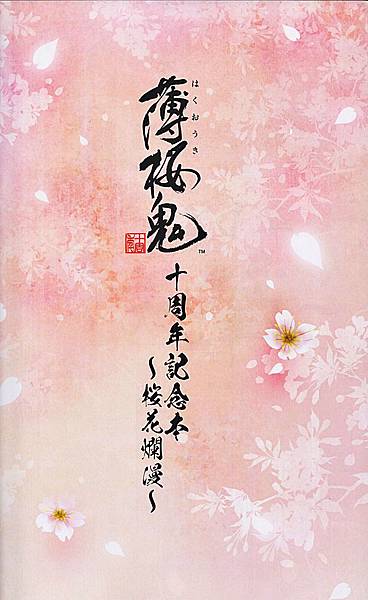 はくおうき
薄桜鬼™
十周年記念本
～桜花爛漫～